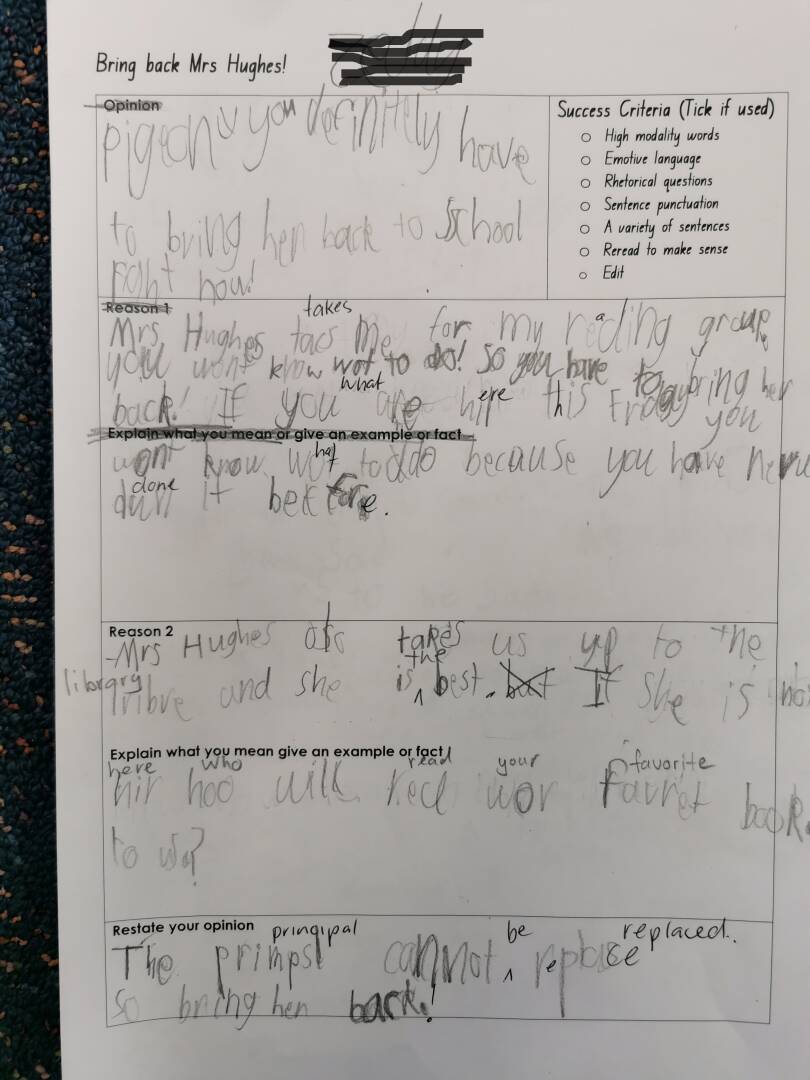 Bring back Mrs Hughes!
Opinion
pigeon you definitely have
to bring her back to School
right now!
Success Criteria (Tick if used)
○ High modality words
○ Emotive language
○ Rhetorical questions
○ Sentence punctuation
○ A variety of sentences
○ Reread to make sense
○ Edit
Reason 1
takes
Mrs Hughes tacs me for my reading group,
you wont know wot to do! So you have to bring her
what ere
back! If you are hir this Friday you
Explain what you mean or give an example or fact
hat
wont know wot to do because you have nevu
done
dun it before.
Reason 2
Mrs Hughes als takes us up to the
library the
libre and she is ^ best. but If she is not
Explain what you mean give an example or fact
here who read your favorite
hir hoo will red wor favret book
to us?
Restate your opinion
principal be replaced.
The primpsl cannot ^ replase
So bring her back!